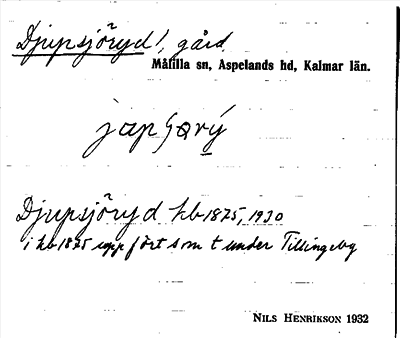 Djupsjöryd!, gård
Målilla sn, Aspelands hd, Kalmar län.
Djupsjöryd hb 1875, 1930
i hb 1875 uppfört som t under Tillingeby
NILS HENRIKSON 1932